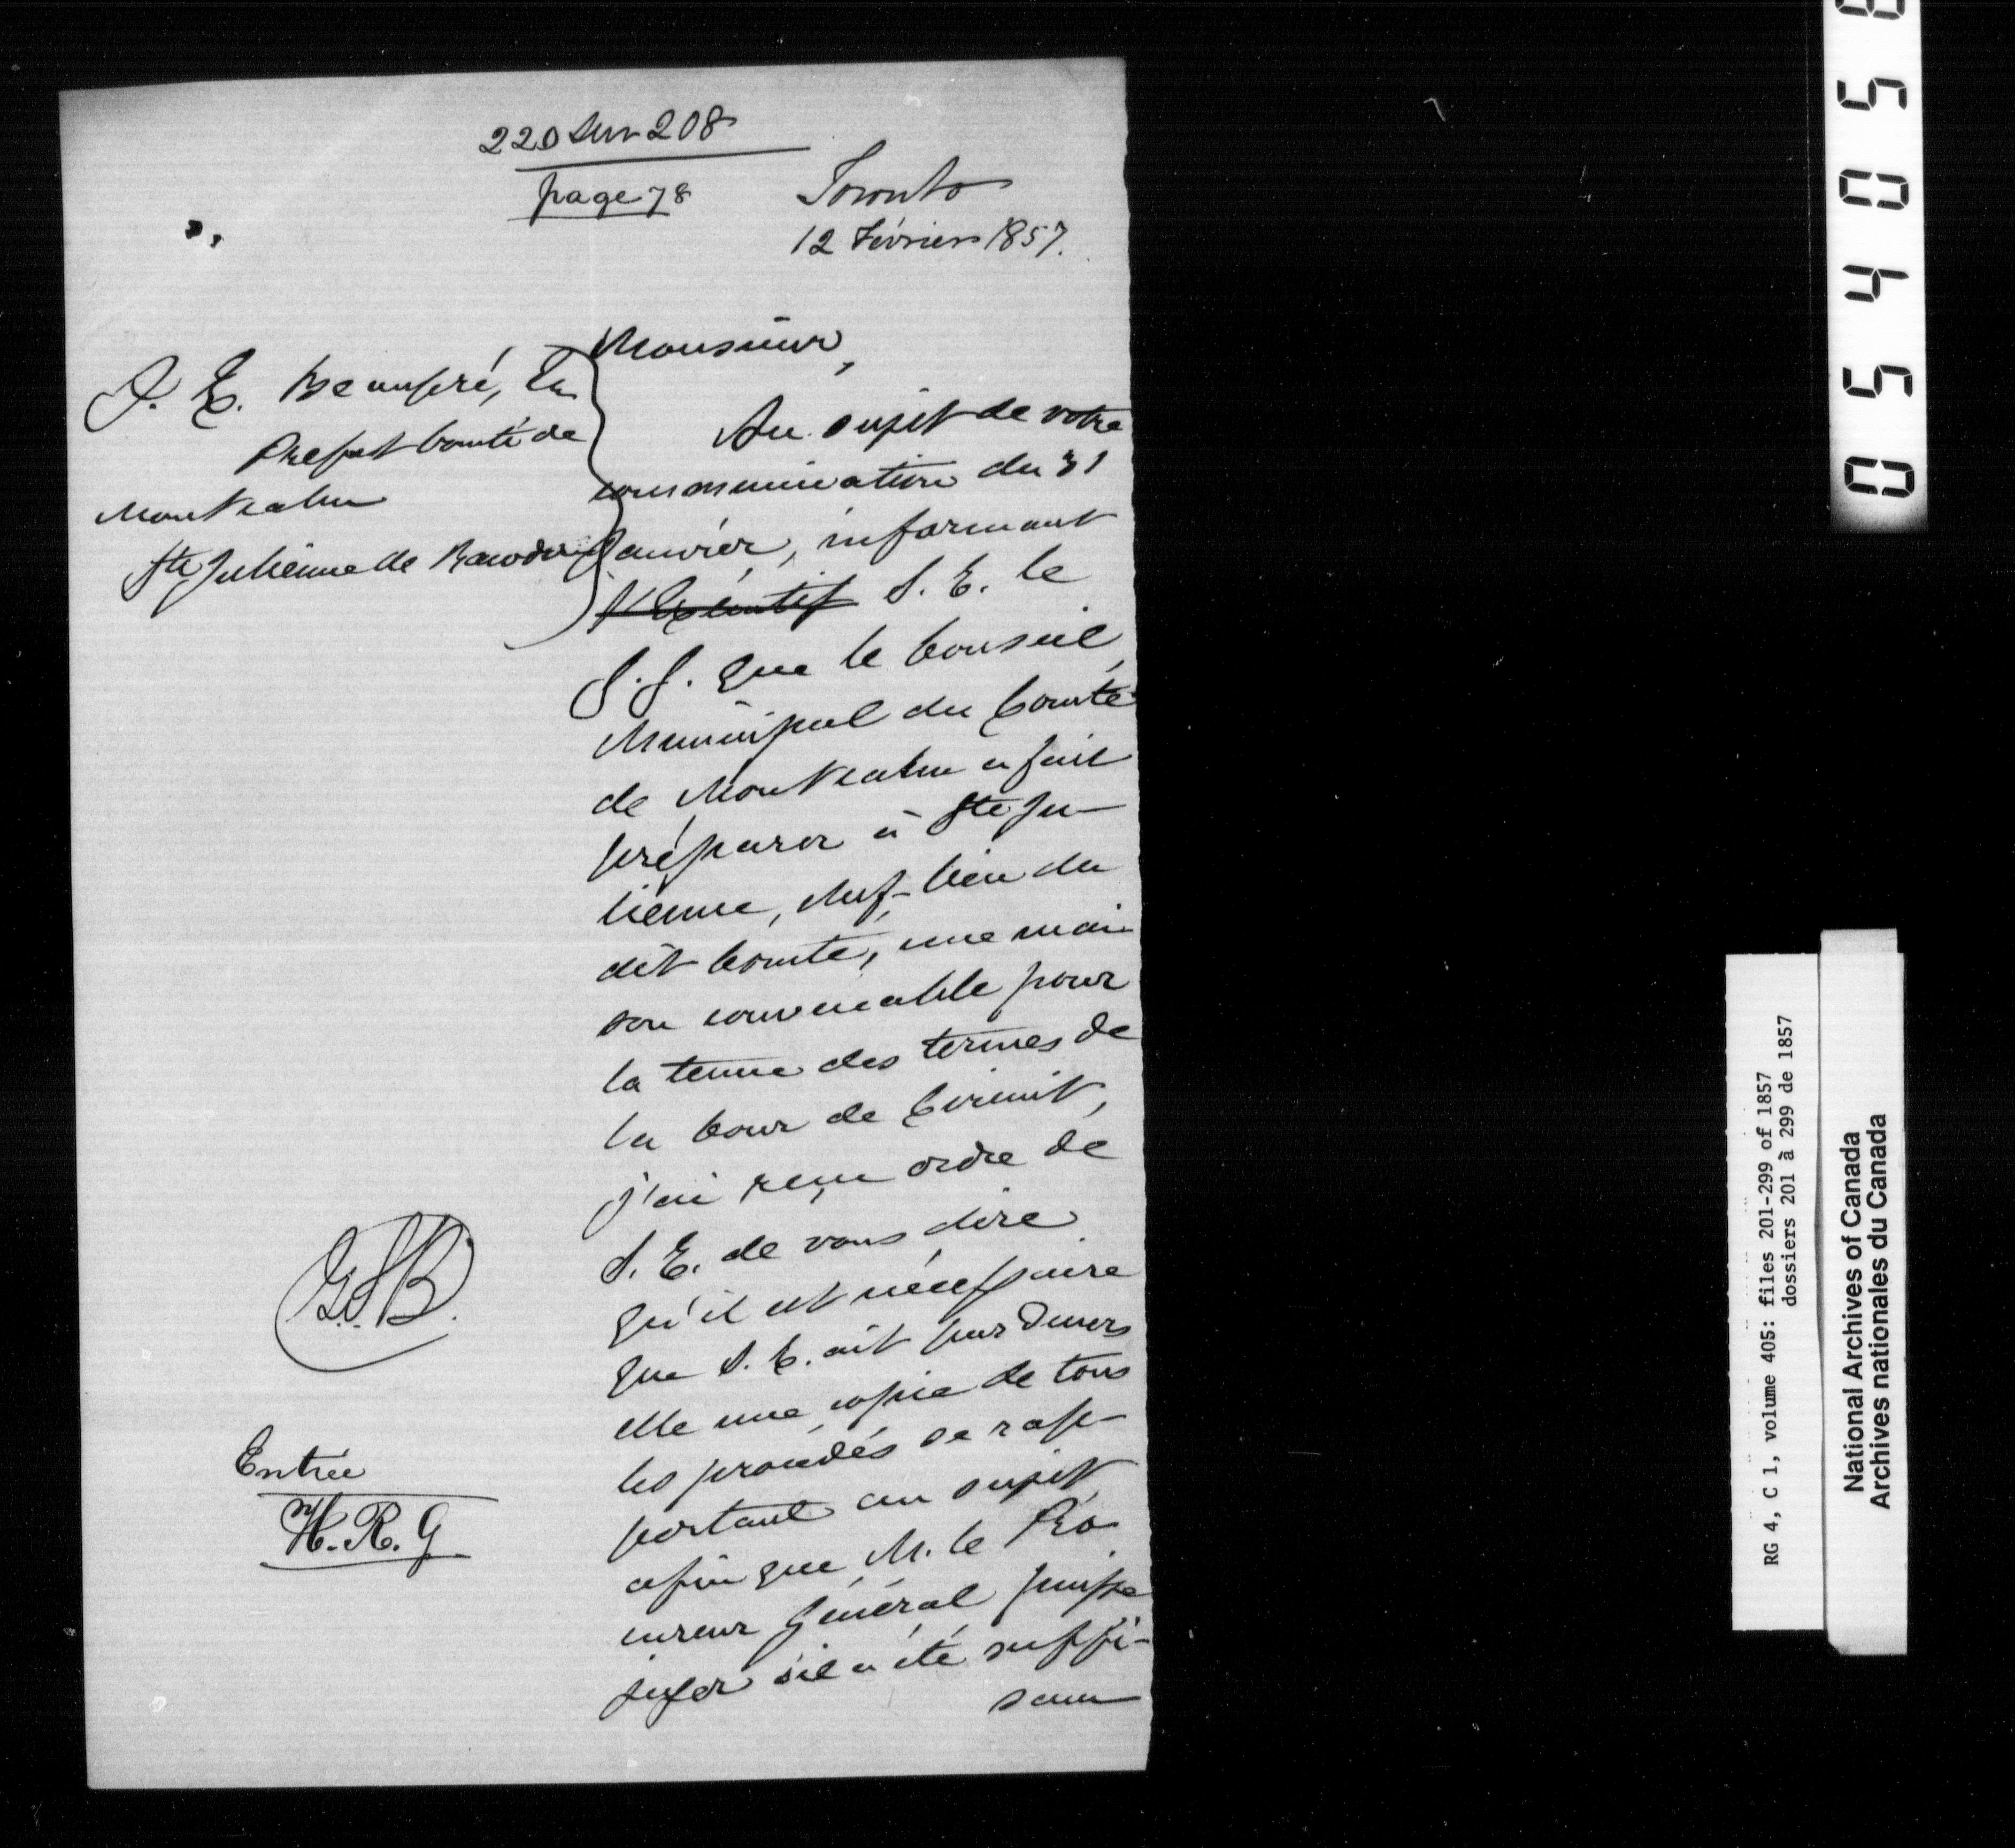 220 sur 208
page 78
Toronto
12 Février 1857.
J. E. Beaupré, Ecr
Prefet Comté de
Montcalm
Ste Julienne de Rawdon
Monsieur,
Au sujet de votre
communication du 31
Janvier, informant
l'Exécutif S. E. le
G. G. que le Conseil
Municipal du Comté
de Montcalm a fait
préparer à Ste Ju-
lienne, chef-lieu du
dit Comté, une mai-
son convenable pour
la tenue des termes de
la Cour de Circuit,
j'ai reçu ordre de
S. E. de vous dire
qu'il est nécessaire
que S. E. ait par devers
elle une copie de tous
les procédés se rap-
portant au sujet,
afin que M. le Pro-
cureur Général puisse
juger s'il a été suffi-
sam
Entrée
H. R. G
0 5 4 0 5
RG 4, C 1, volume 405: files 201-299 of 1857
dossiers 201 à 299 de 1857
National Archives of Canada
Archives nationales du Canada